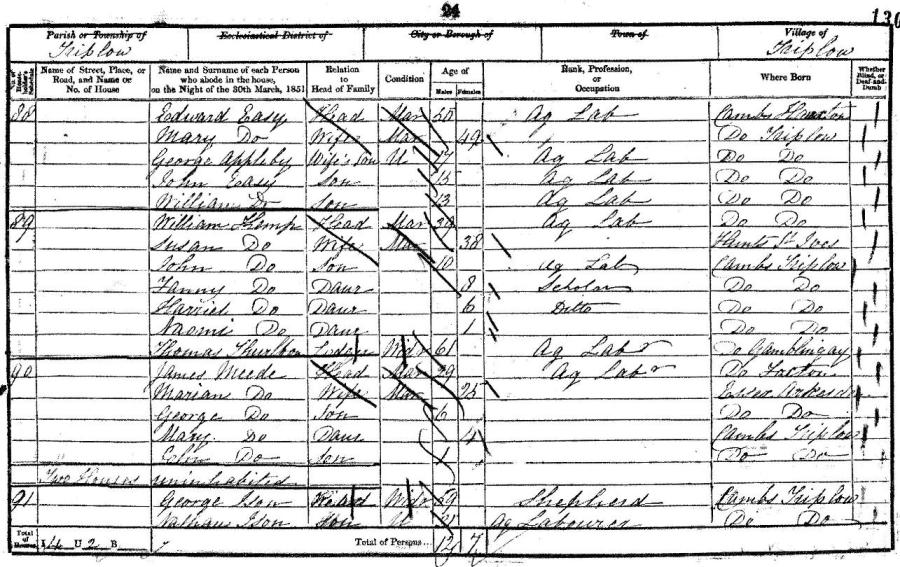 24
130
Parish or Township of Ecclesiastical District of City or Borough of Town of Village of
Triplow Triplow
Name of Street, Place, or Road, and Name or No. of House
Name and Surname of each Person who abode in the house, on the Night of the 30th March, 1851
Relation to Head of Family
Condition
Age of
Males Females
Rank, Profession, or Occupation
Where Born
Whether Blind, or Deaf-and-Dumb
88 Edward Easy Head Mar 50 Ag Lab Cambs Hauxton
Mary Do Wife Mar 49 Do Triplow
George Appleby Wife's Son U 17 Ag Lab Do Do
John Easy Son 15 Ag Lab Do Do
William Do Son 13 Ag Lab Do Do
89 William Kemp Head Mar 39 Ag Lab Do Do
Susan Do Wife Mar 38 Hunts St Ives
John Do Son 10 Ag Lab Cambs Triplow
Fanny Do Daur 8 Scholar Do Do
Harriet Do Daur 6 Ditto Do Do
Naomi Do Daur 1 Do Do
Thomas Lodger Widr 61 Ag Labr Do Gamblingay
90 James Meede Head Mar 29 Ag Labr Do
Marian Do Wife Mar 25 Essex
George Do Son 6 Do Do
Mary Do Daur 4 Cambs Triplow
Do Son 1 Do Do
Two Houses uninhabited
91 George Ison Head Widr 59 Shepherd Cambs Triplow
Nathan Ison Son U 21 Ag Labourer Do Do
Total of Houses 4 U 2 B Total of Persons... 12 7